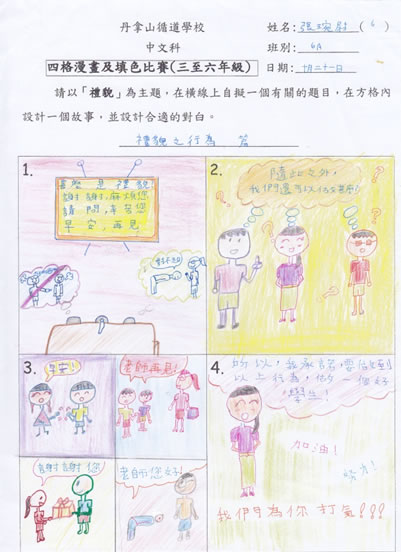 丹拿山循道學校
中文科
四格漫畫及填色比賽(三至六年級)
姓名:張琬尉(6)
班別:4A
日期:十月二十一日
請以「禮貌」為主題,在橫線上自擬一個有關的題目,在方格內
設計一個故事,並設計合適的對白。
禮貌之行為 篇
1.
甚麼是禮貌!
謝謝,麻煩您
請問,辛苦您
早安,再見
對不起
2.
除此之外,
我們還可以做甚麼?
3.
早安!
老師再見!
謝謝您
老師您好!
4.
所以,我承諾要做到
以上行為,做一個好
學生!
加油!
努力!
我們會為你打氣!!!